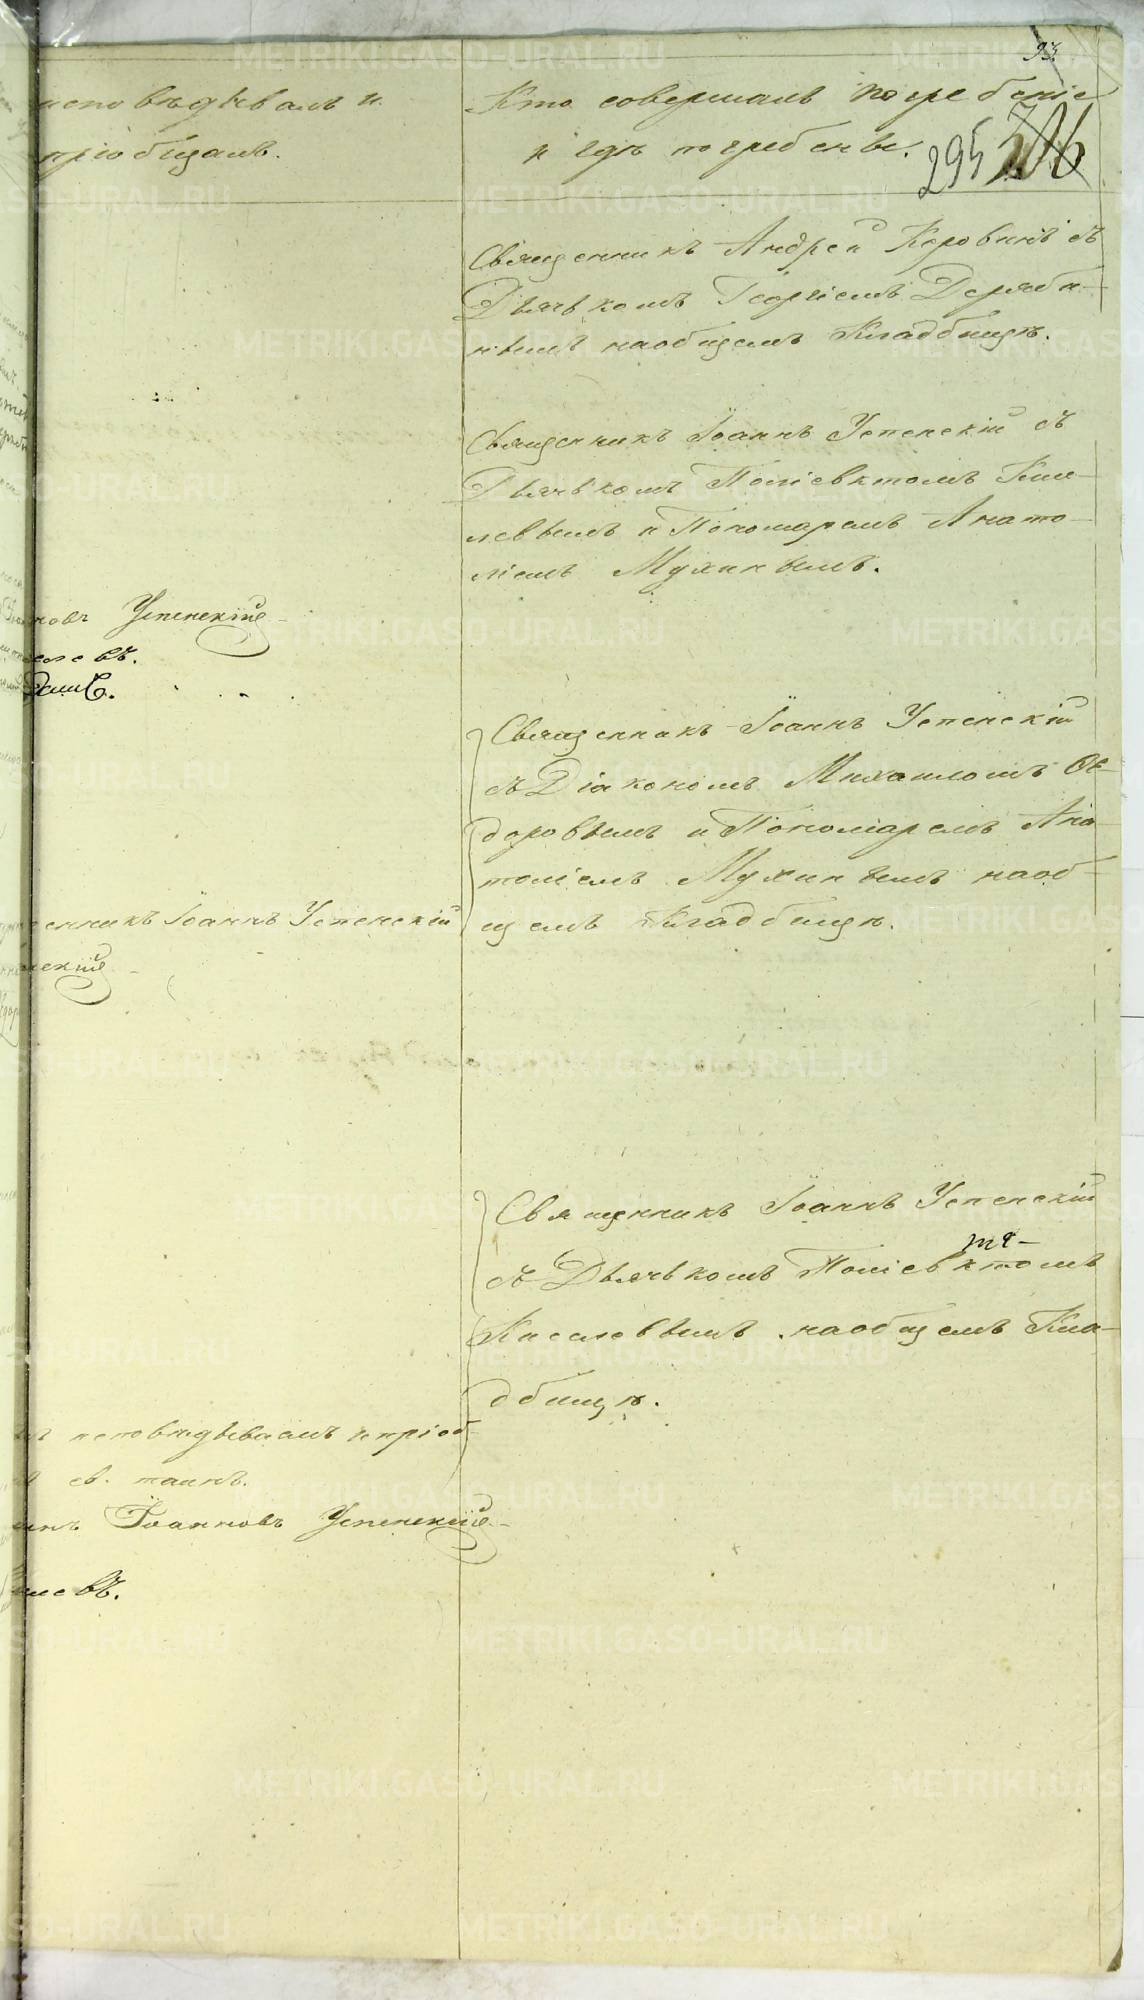 93
исповѣдывалъ и
пріобщалъ.
Кто совершалъ погребеніе
и гдѣ погребены.
295 306
Священникъ Андрей Коровинъ съ
Дьячькомъ Георгіемъ Деряби-
нымъ на общемъ Кладбищѣ.
Священникъ Іоаннъ Успенскій съ
Дьячькомъ Поліевктомъ Кис-
левымъ и Пономаремъ Анато-
ліемъ Мухинымъ.
новъ Успенскій
левъ.
Священникъ Іоаннъ Успенскій
съ Діакономъ Михаиломъ Ѳе-
доровымъ и Пономаремъ Ана-
толіемъ Мухинымъ на об-
щемъ Кладбищѣ.
енникъ Іоаннъ Успенскій
нскій
Священникъ Іоаннъ Успенскій
съ Дьячькомъ Поліевктомъ
Киселевымъ на общемъ Кла-
дбищѣ.
исповѣдывалъ и пріоб-
св. таинъ.
Іоанновъ Успенскій
левъ.
METRIKI.GASO-URAL.RU